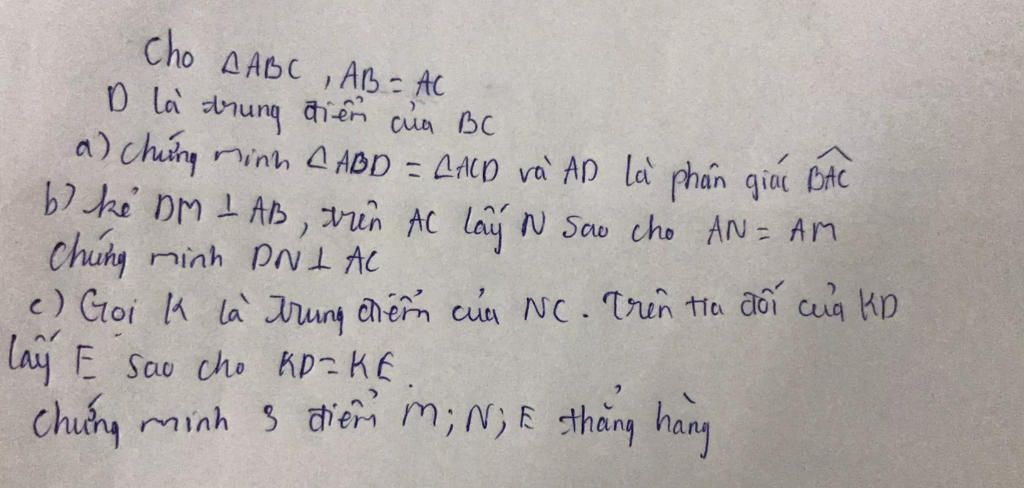 Cho ΔABC, AB = AC
D là trung điểm của BC
a) chứng minh ΔABD = ΔACD và AD là phân giác \widehat{BAC}
b) kẻ DM ⊥ AB, trên AC lấy N sao cho AN = AM
Chứng minh DN ⊥ AC
c) Gọi K là trung điểm của NC. Trên tia đối của KD
lấy E sao cho KD = KE.
Chứng minh 3 điểm M; N; E thẳng hàng